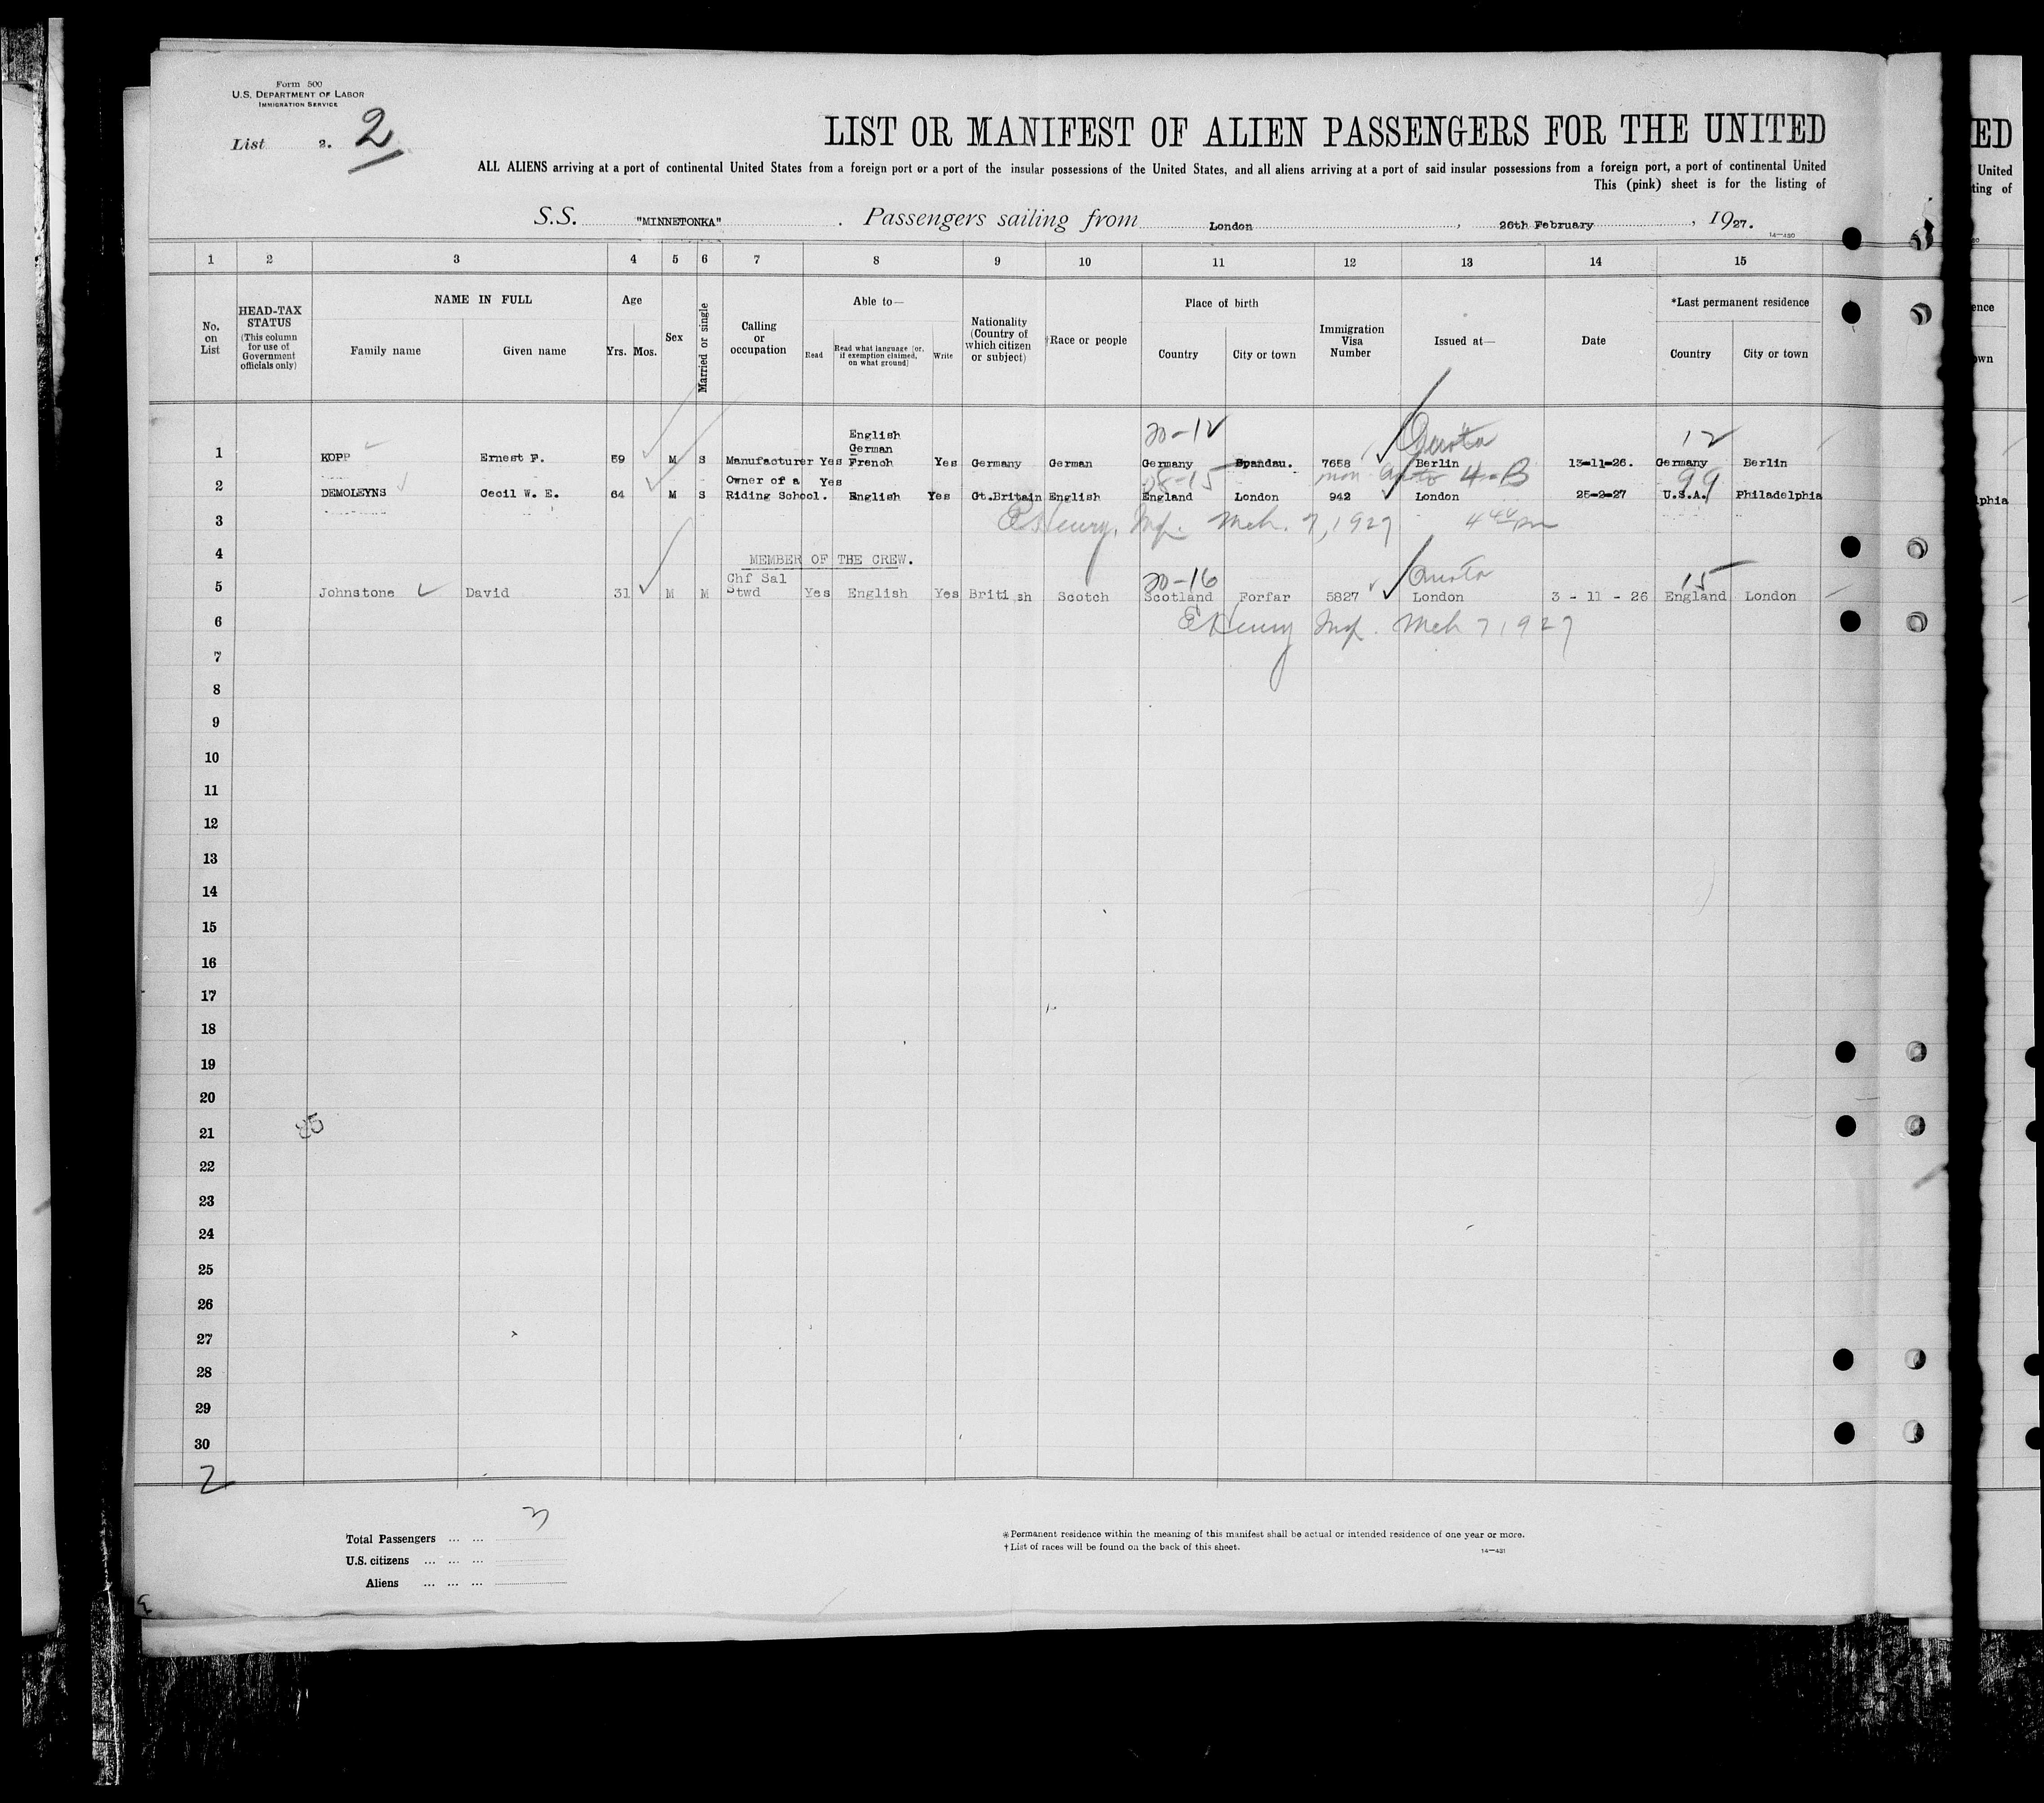 Form 500
U.S. DEPARTMENT OF LABOR
IMMIGRATION SERVICE
List 2. 2
LIST OR MANIFEST OF ALIEN PASSENGERS FOR THE UNITED
ALL ALIENS arriving at a port of continental United States from a foreign port or a port of the insular possessions of the United States, and all aliens arriving at a port of said insular possessions from a foreign port, a port of continental United
This (pink) sheet is for the listing of
S.S. "MINNETONKA". Passengers sailing from London, 26th February, 1927.
14—430
1 2 3 4 5 6 7 8 9 10 11 12 13 14 15
No. on List
HEAD-TAX STATUS (This column for use of Government officials only)
NAME IN FULL
Family name Given name
Age
Yrs. Mos.
Sex
Married or single
Calling or occupation
Able to—
Read Read what language [or, if exemption claimed, on what ground] Write
Nationality (Country of which citizen or subject)
†Race or people
Place of birth
Country City or town
Immigration Visa Number
Issued at—
Date
*Last permanent residence
Country City or town
20-12 Quota 12
English
German
1 KOPP Ernest F. 59 M S Manufacturer Yes French Yes Germany German Germany Spandau. 7658 Berlin 13-11-26. Germany Berlin
Owner of a Yes 15 non quota 4-B 99
2 DEMOLEYNS Cecil W. E. 64 M S Riding School. English Yes Gt.Britain English England London 942 London 25-2-27 U.S.A. Philadelphia
3 Henry, Insp. Mch. 7, 1927 4 40 pm
4 MEMBER OF THE CREW.
20-16 Quota 15
5 Johnstone David 31 M M Chf Sal Stwd Yes English Yes British Scotch Scotland Forfar 5827 London 3 - 11 - 26 England London
6 Henry Insp. Mch 7 1927
7
8
9
10
11
12
13
14
15
16
17
18
19
20
21 85
22
23
24
25
26
27
28
29
30
2
Total Passengers ... ... 3
U.S. citizens ... ... ...
Aliens ... ... ...
*Permanent residence within the meaning of this manifest shall be actual or intended residence of one year or more.
†List of races will be found on the back of this sheet.
14—431
ED
United
ting of
ence
own
lphia